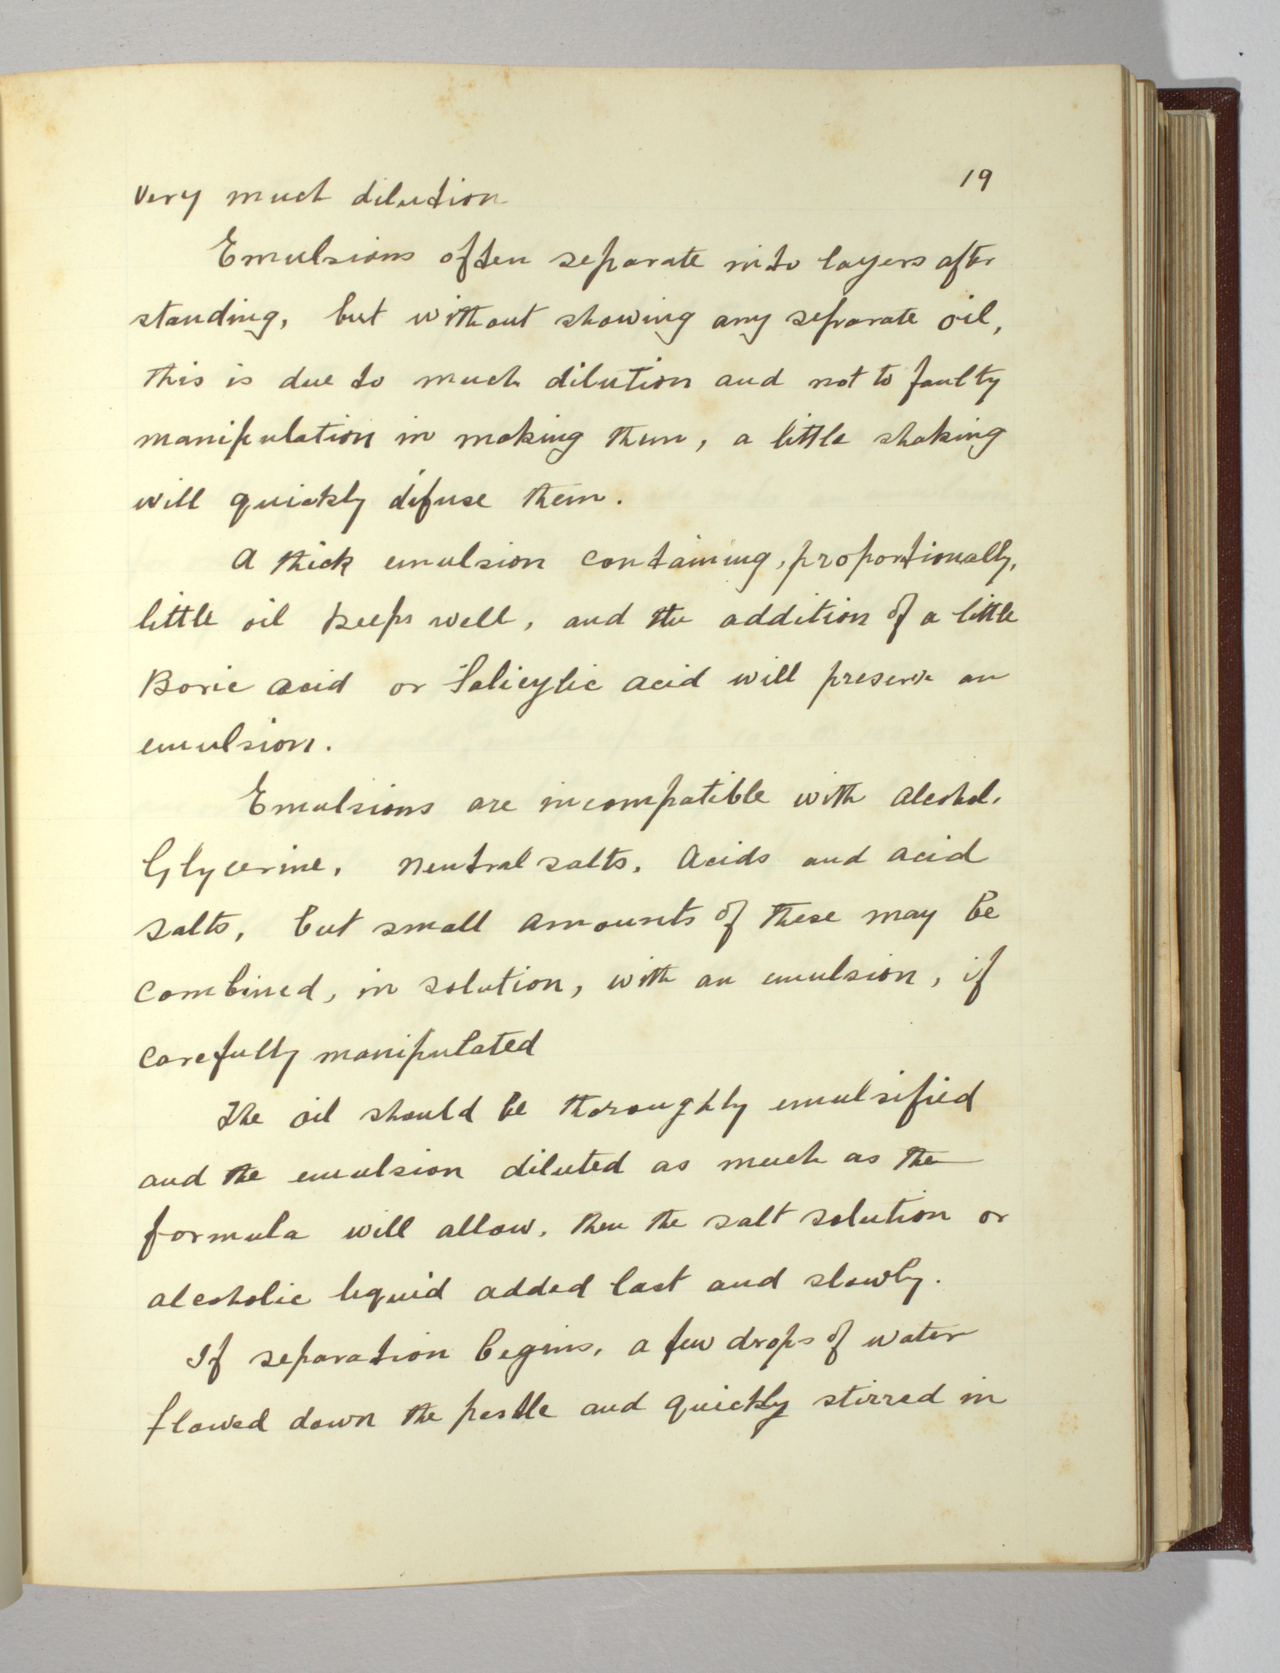 19
very much dilution
Emulsions often separate into layers after
standing, but without showing any separate oil,
this is due to much dilution and not to faulty
manipulation in making them, a little shaking
will quickly difuse them.
A thick emulsion containing, proportionally,
little oil keeps well, and the addition of a little
Boric acid or Salicylic acid will preserve an
emulsion.
Emulsions are incompatible with Alcohol,
Glycerine, Neutral salts, Acids and acid
salts, but small amounts of these may be
combined, in solution, with an emulsion, if
carefully manipulated
The oil should be thoroughly emulsified
and the emulsion diluted as much as the
formula will allow, then the salt solution or
alcoholic liquid added last and slowly.
If separation begins, a few drops of water
flowed down the pestle and quickly stirred in